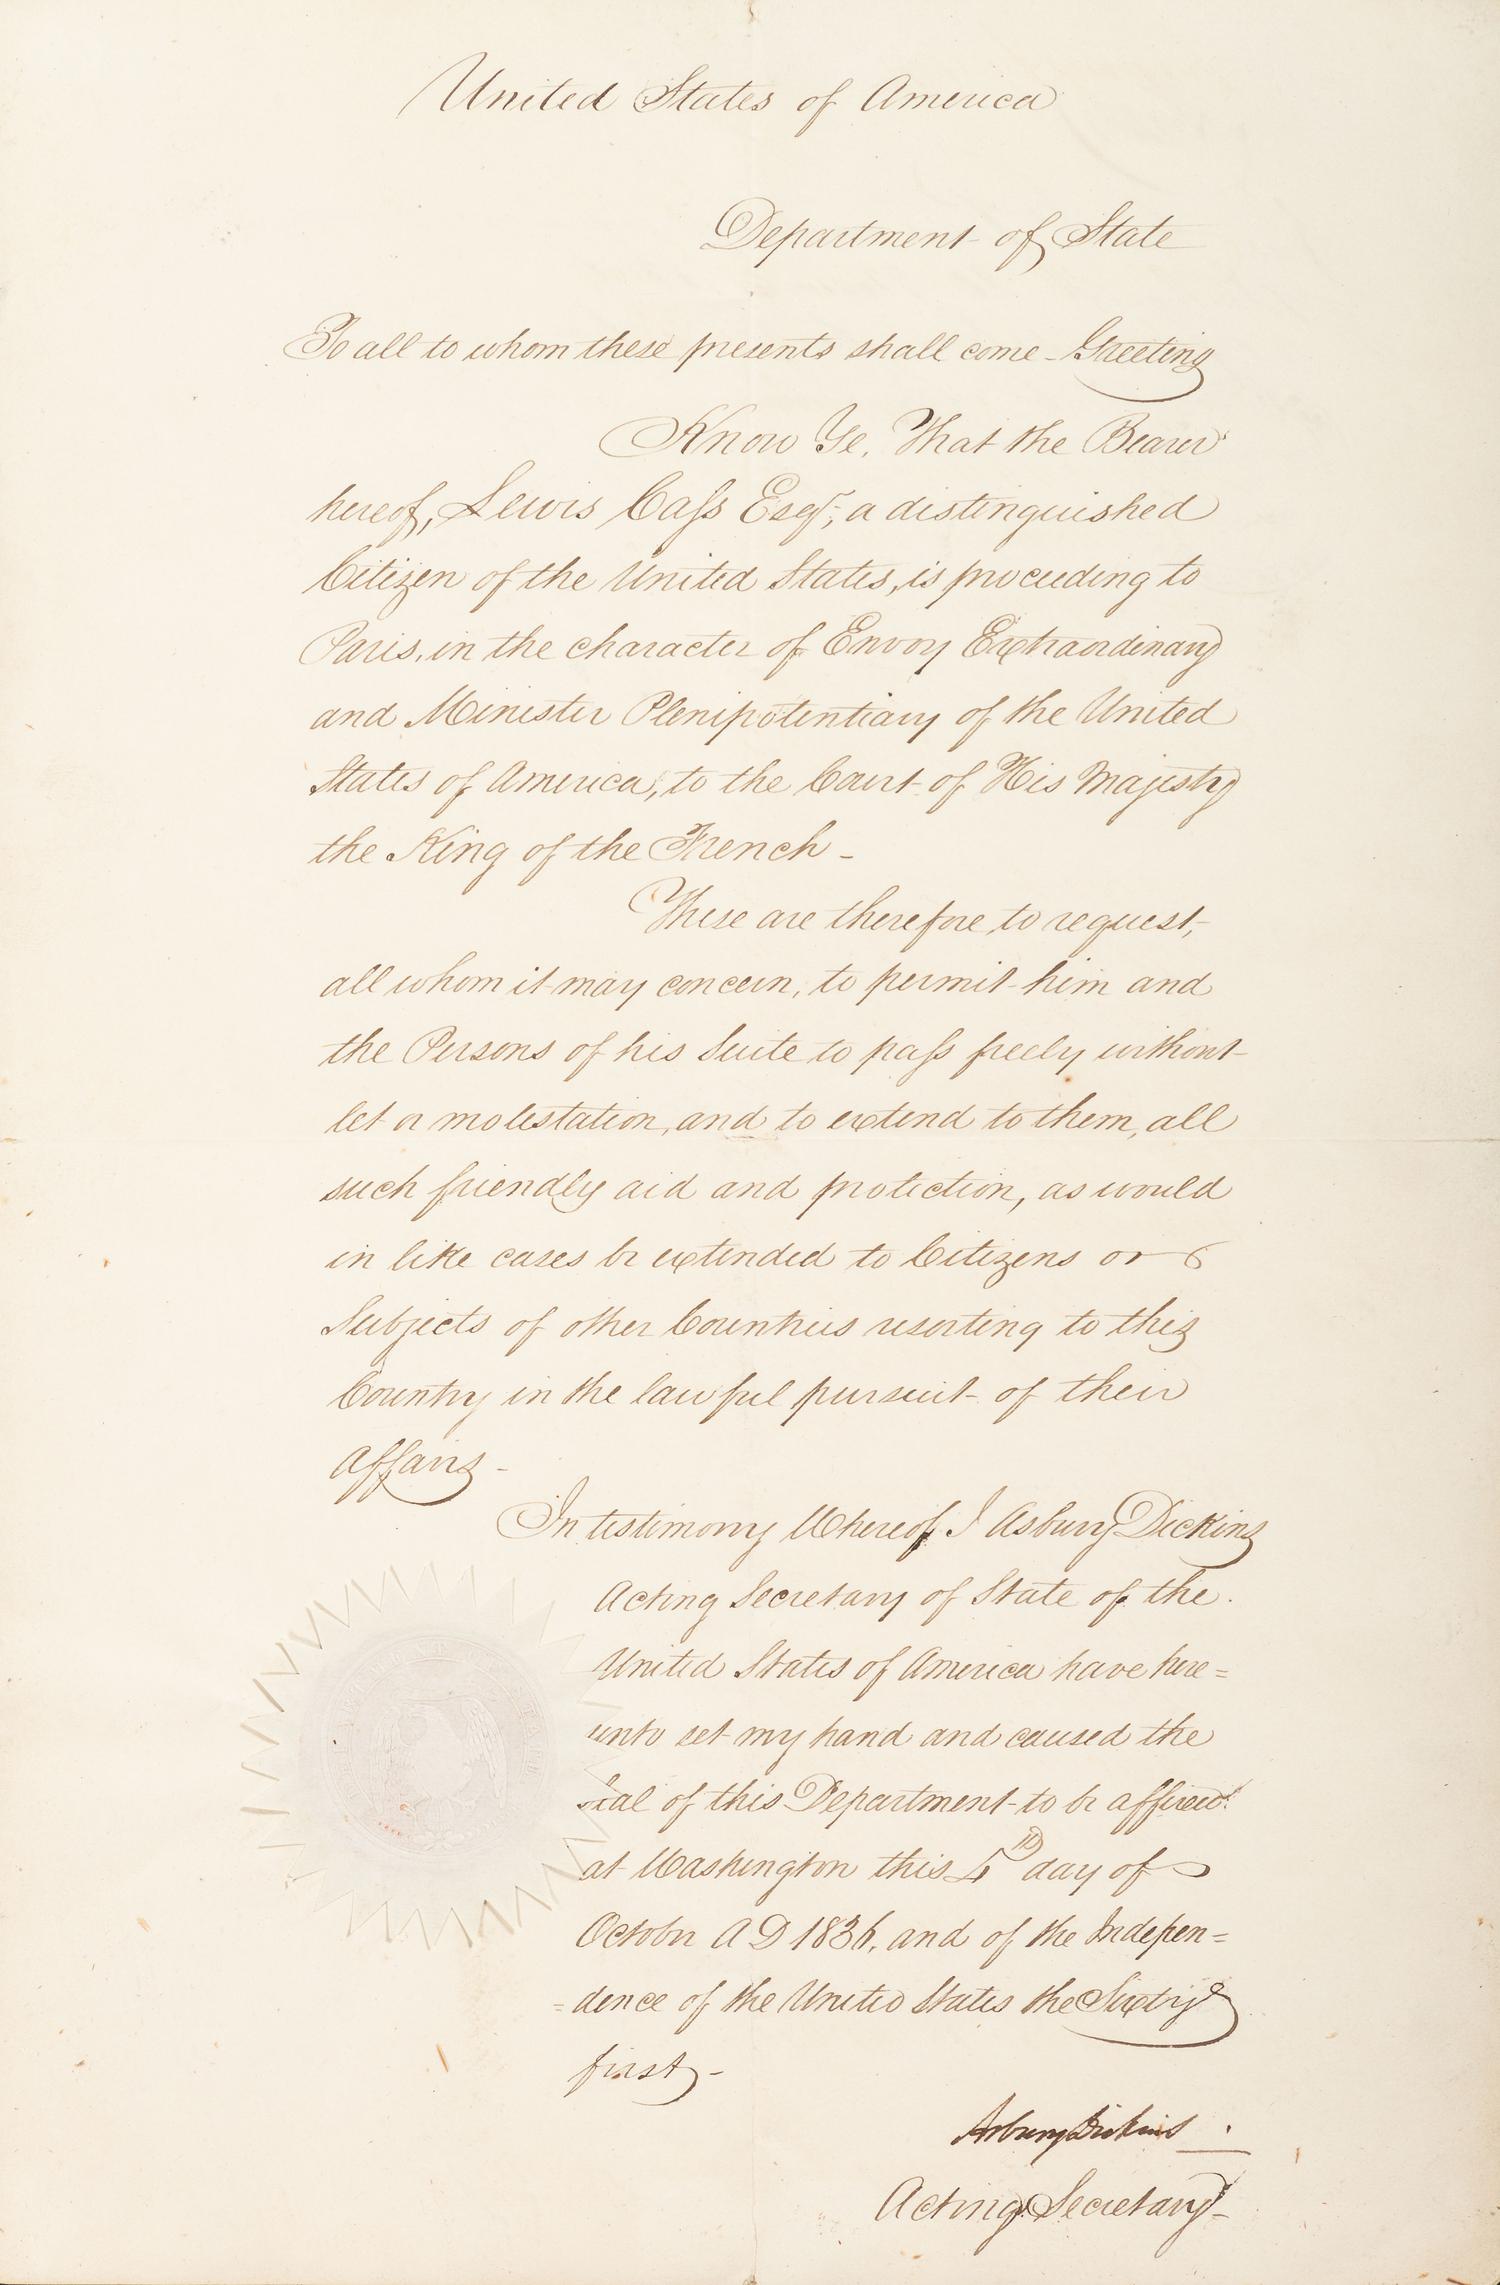 United States of America
Department of State
To all to whom these presents shall come - Greeting
Know Ye, That the Bearer
hereof, Lewis Caſs Esqr, a distinguished
Citizen of the United States, is proceeding to
Paris, in the character of Envoy Extraordinary
and Minister Plenipotentiary of the United
States of America, to the Court of His Majesty
the King of the French -
These are therefore to request,
all whom it may concern, to permit him and
the Persons of his Suite to paſs freely without
let or molestation, and to extend to them, all
such friendly aid and protection, as would
in like cases be extended to Citizens or
Subjects of other Countries resorting to this
Country in the lawful pursuit of their
affairs -
In testimony Whereof I Asbury Dickins
Acting Secretary of State of the
United States of America have here=
unto set my hand and caused the
Seal of this Department to be affixed
at Washington this 4th day of
October A D 1836, and of the Indepen=
=dence of the United States the Sixty
first -
Asbury Dickins
Acting Secretary -